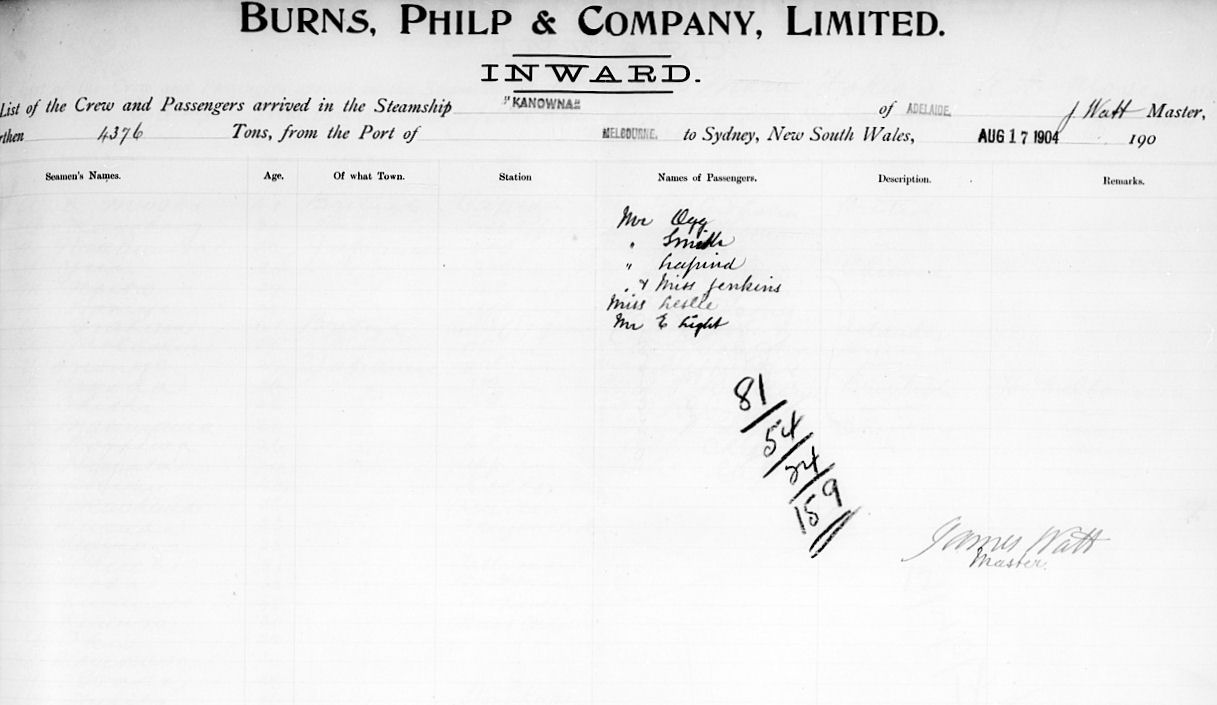 BURNS, PHILP & COMPANY, LIMITED.
INWARD.
List of the Crew and Passengers arrived in the Steamship "KANOWNA" of ADELAIDE. J Watt Master,
then 4376 Tons, from the Port of MELBOURNE. to Sydney, New South Wales, AUG 17 1904 190
Seamen's Names. Age. Of what Town. Station Names of Passengers. Description. Remarks.
Mr Ogg
" Smith
"
" & Miss Jenkins
Miss Leslie
Mr E Light
81/
54/
24/
159//
James Watt
Master.